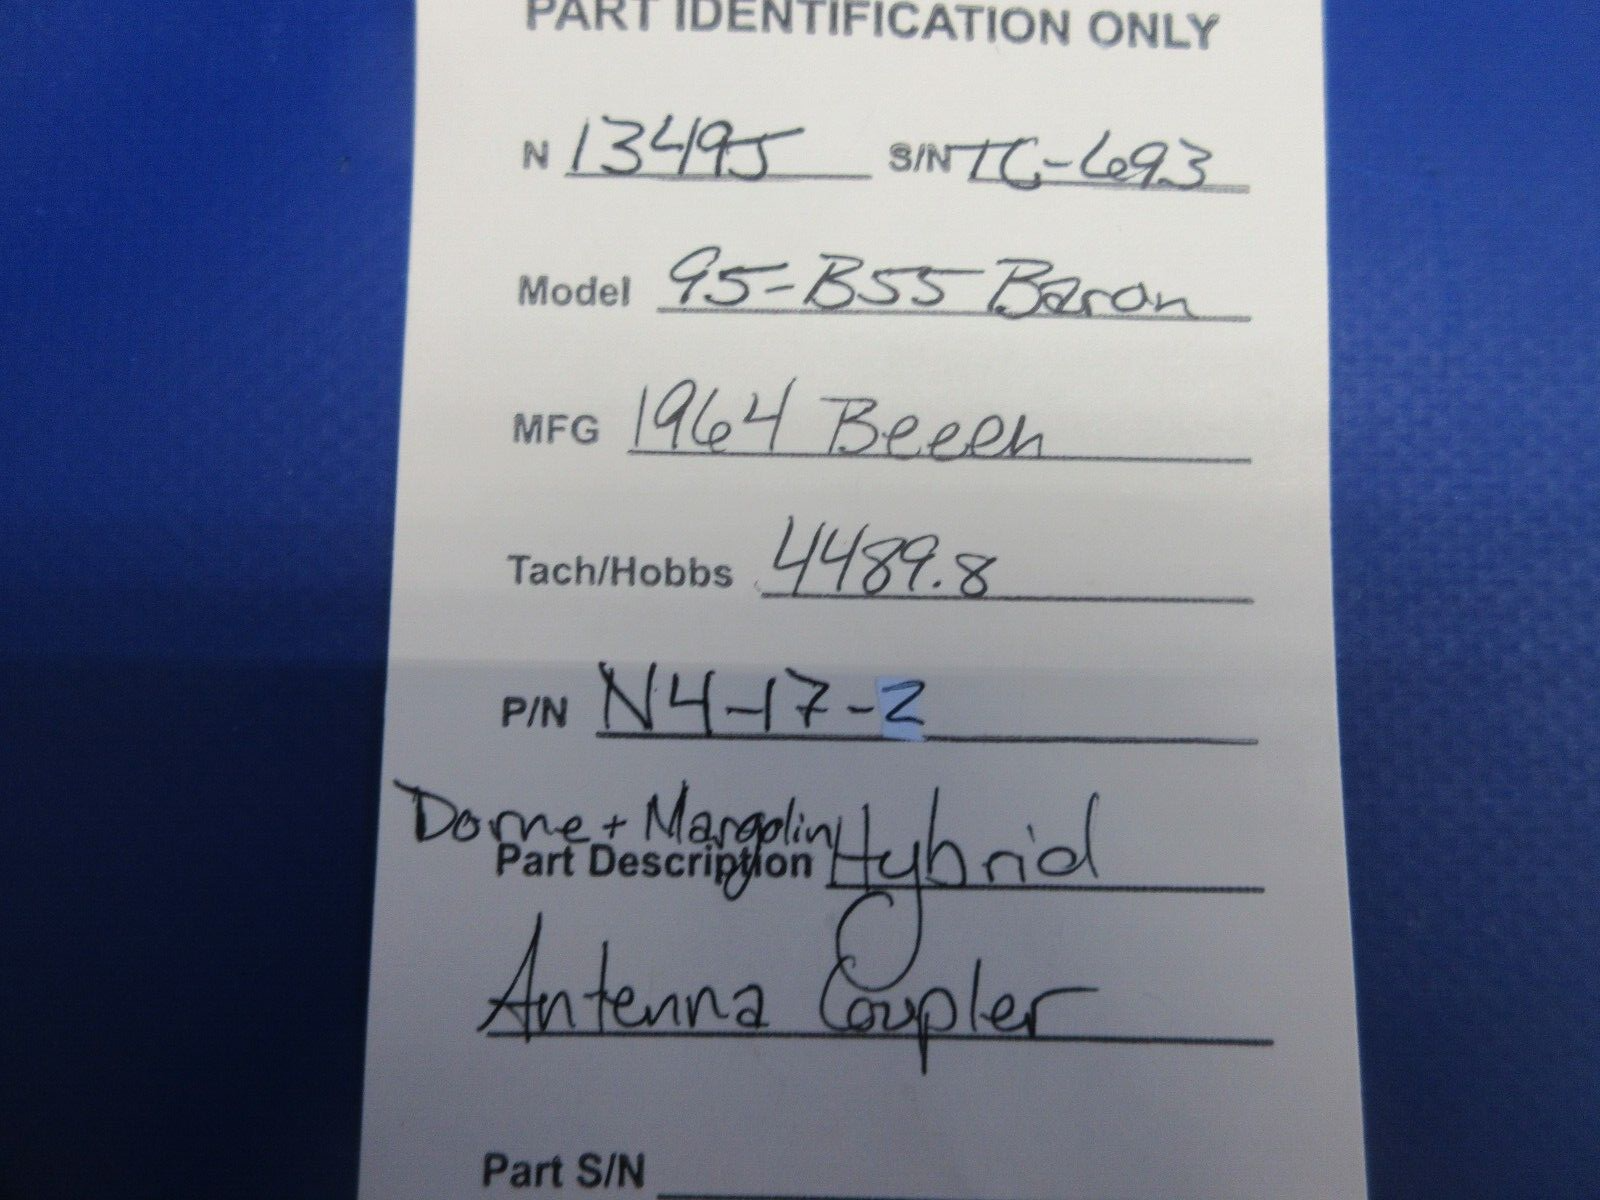 PART IDENTIFICATION ONLY
N 13495 S/N TC-693
Model 95-B55 Baron
MFG 1964 Beech
Tach/Hobbs 4489.8
P/N N4-17-2
Dorne + Margolin
Part Description Hybrid
Antenna Coupler
Part S/N